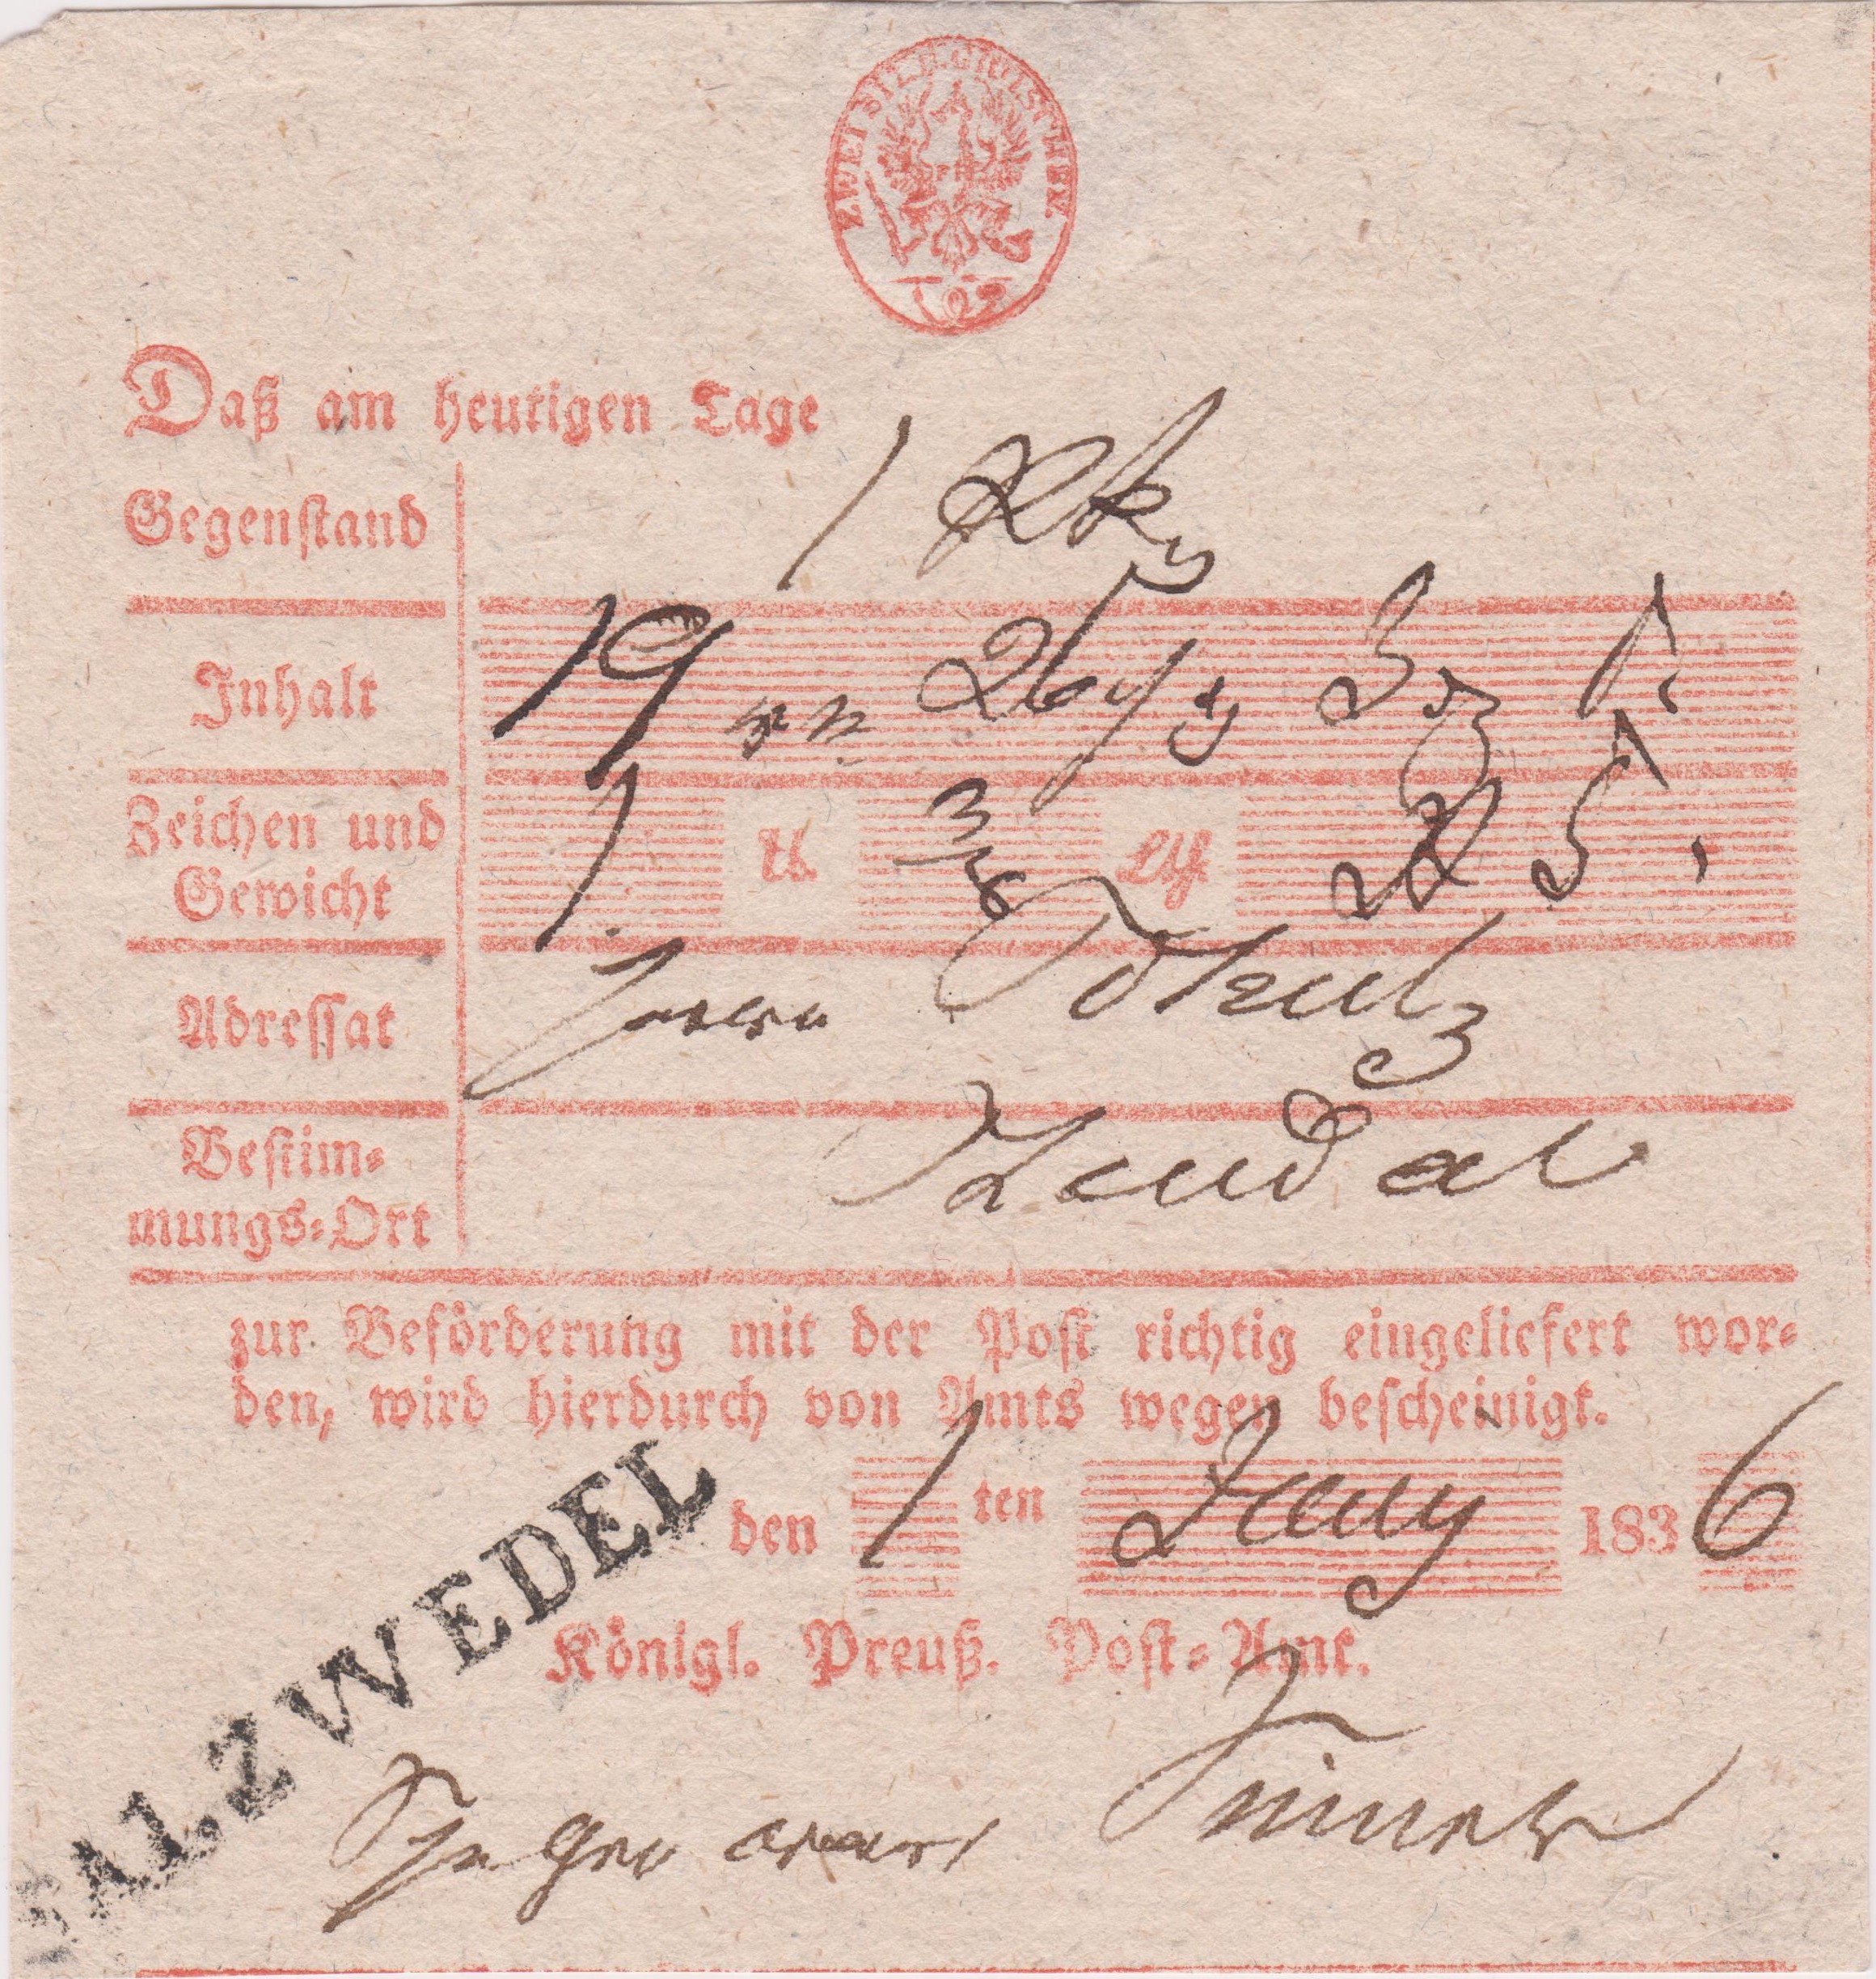 ZWEI SILB. GROSCHEN.
Daß am heutigen Tage
Gegenstand 1
Inhalt 19 26
Zeichen und
Gewicht
Adressat Herrn
Bestim-
mungs-Ort Stendal
zur Beförderung mit der Post richtig eingeliefert wor-
den, wird hierdurch von Amts wegen bescheinigt.
den 1 ten Jany 1836
SALZWEDEL
Königl. Preuß. Post-Amt.